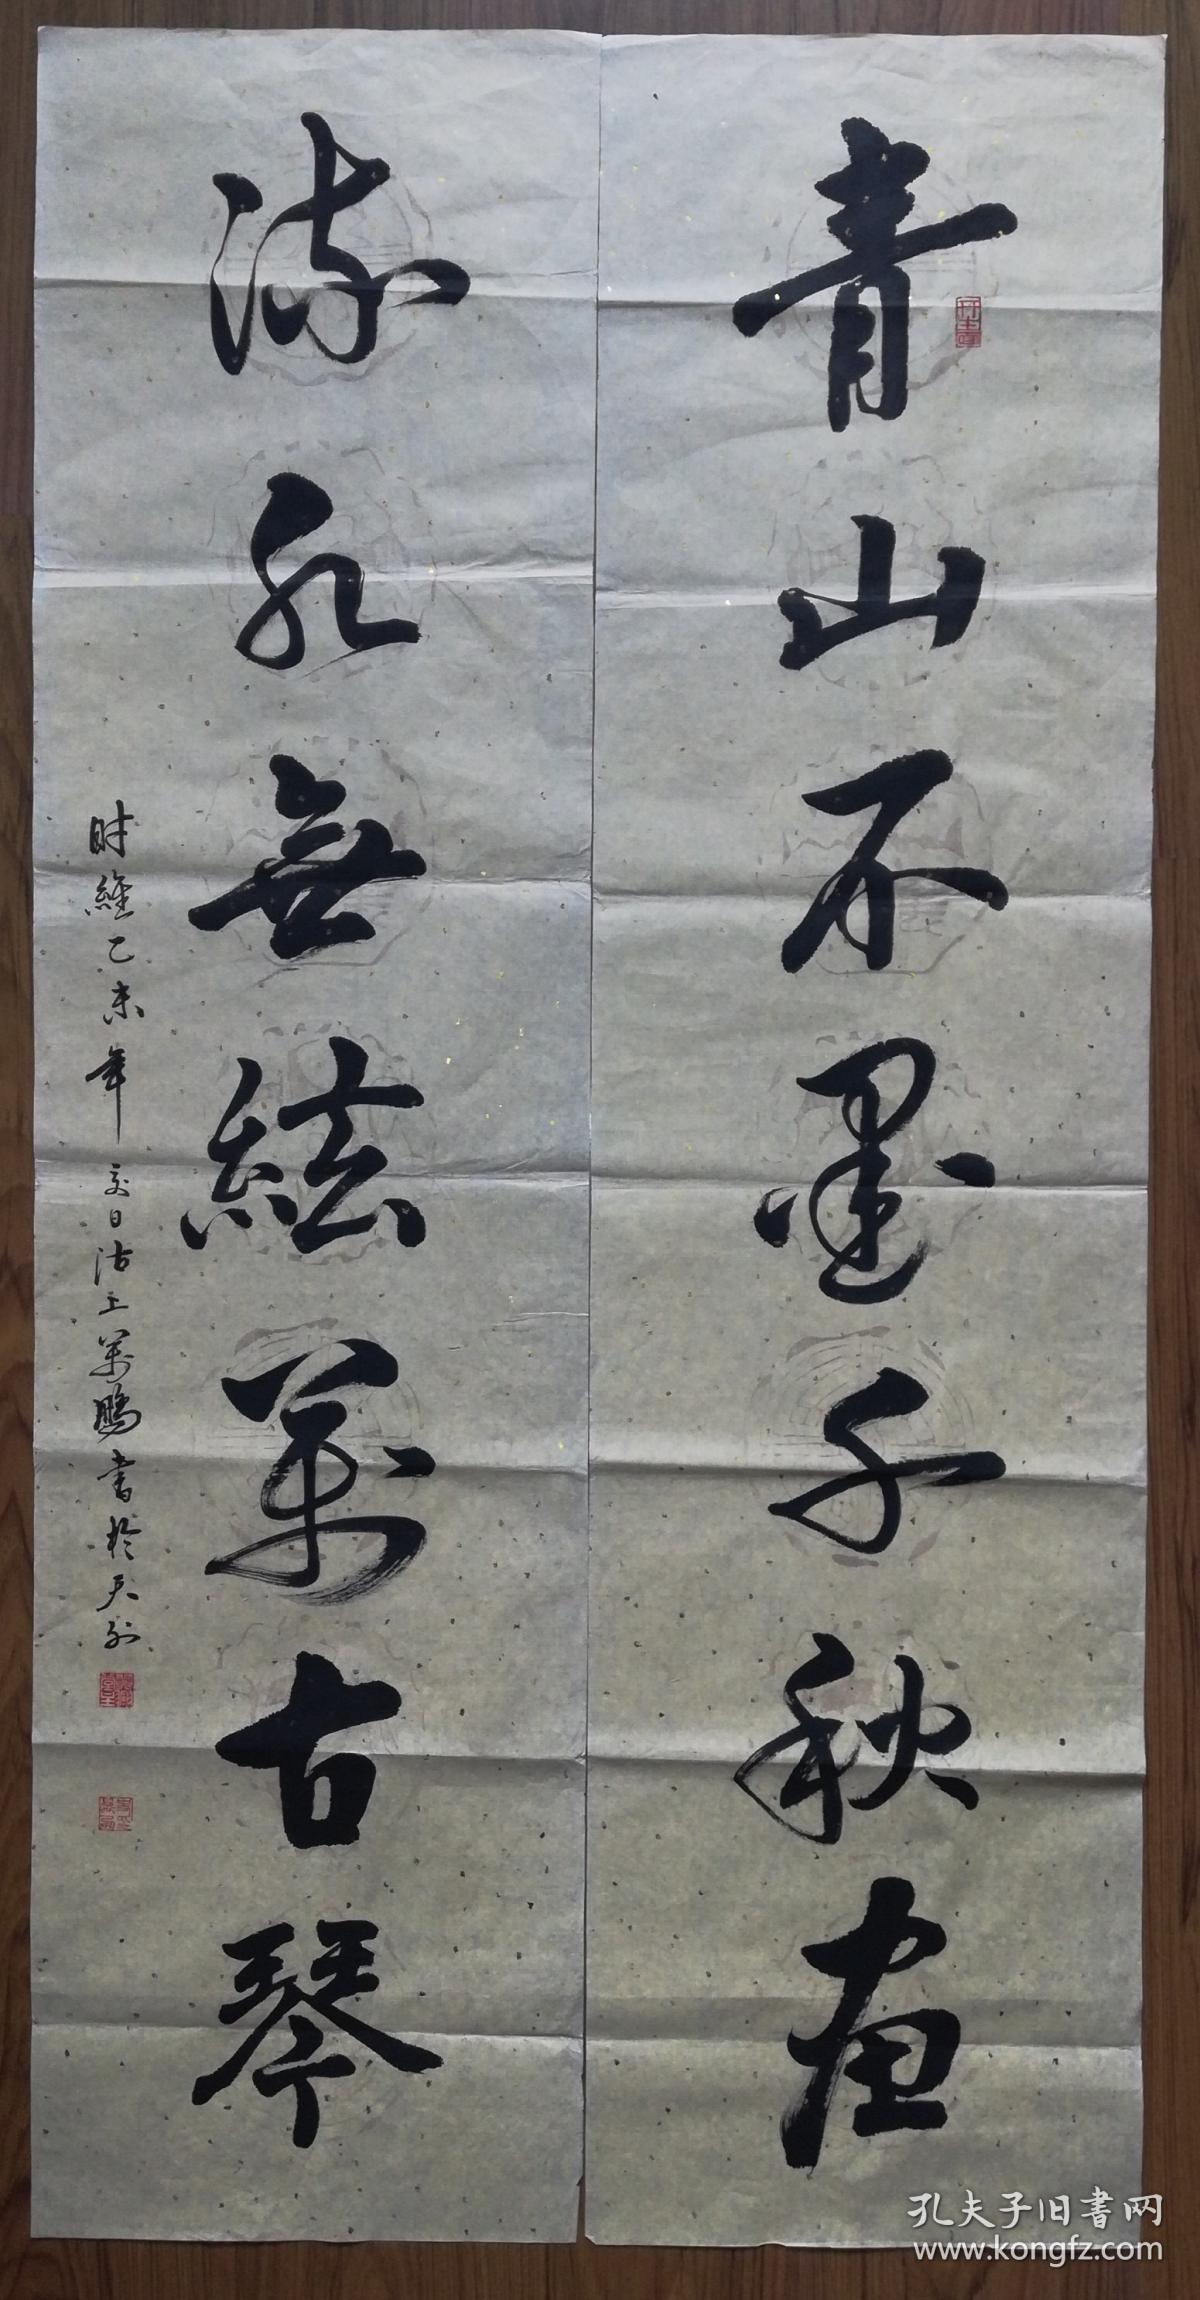 青山不墨千秋画
流水無絃萬古琴
時維乙未年夏日沽上萬鵬書於天外
孔夫子旧書网
www.kongfz.com